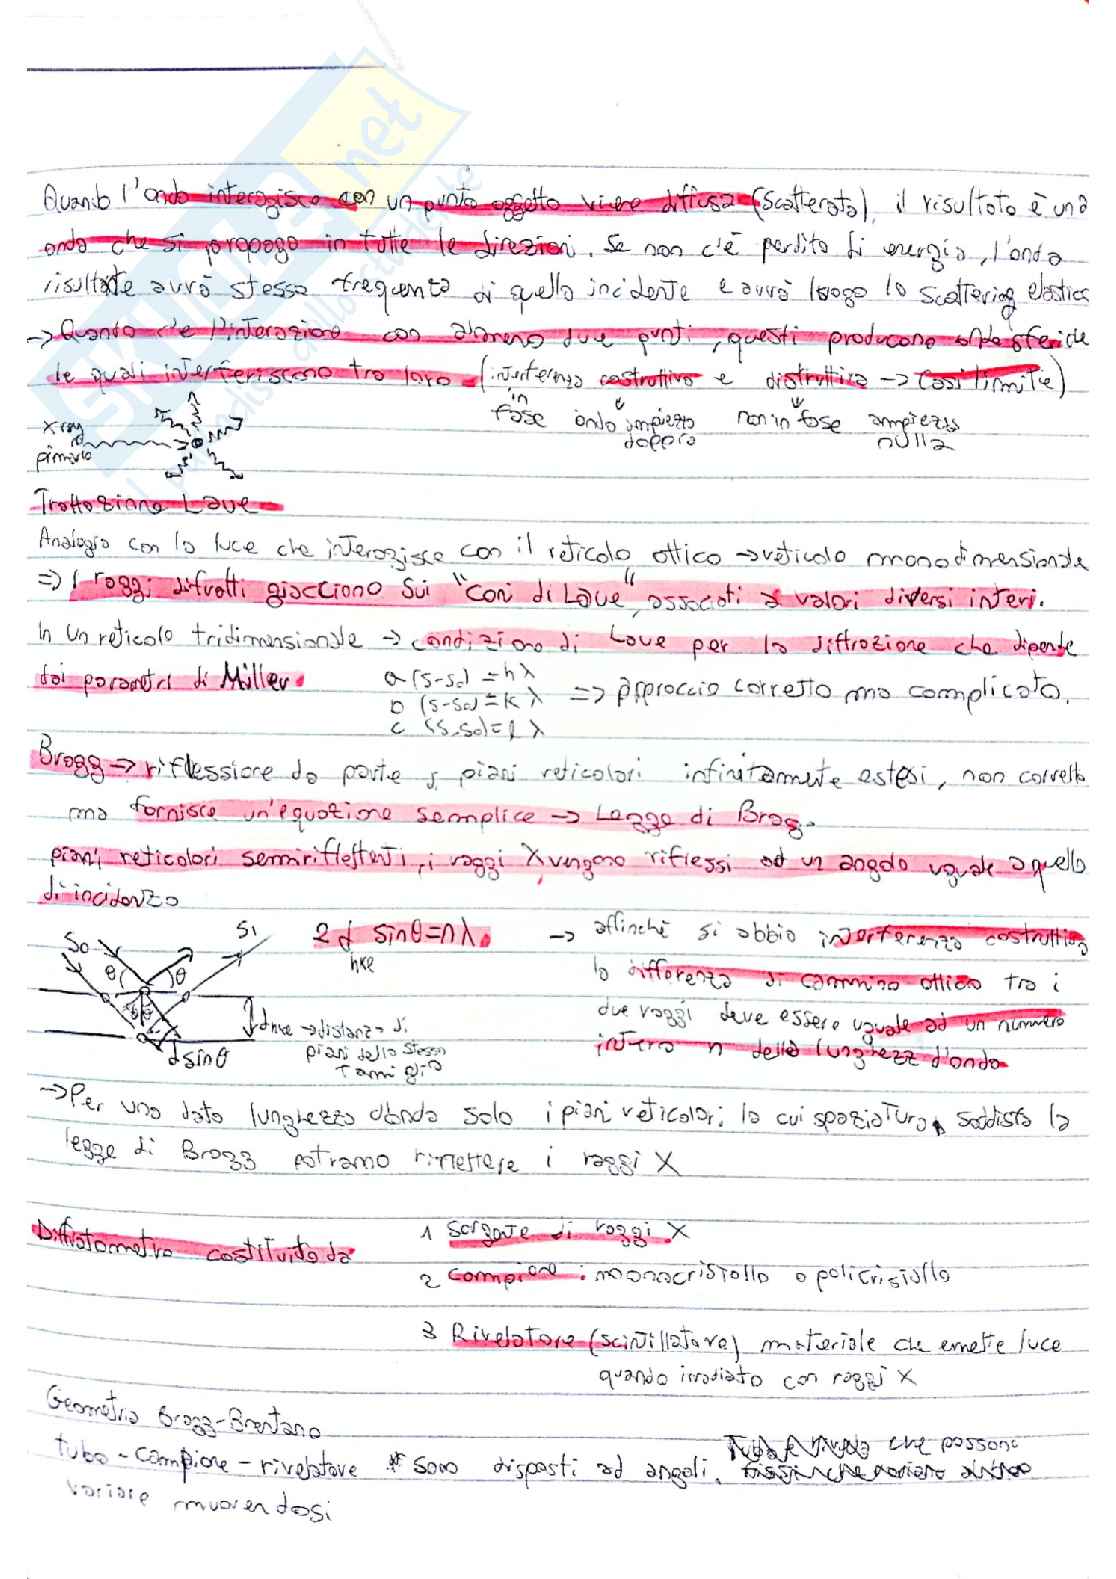 Quando l'onda interagisce con un punto oggetto viene diffusa (scatterata), il risultato è una
onda che si propaga in tutte le direzioni. Se non c'è perdita di energia, l'onda
risultate avrà stessa frequenza di quella incidente e avrà luogo lo scattering elastico
→ Quando c'è l'interazione con almeno due punti, questi producono onde sferiche
le quali interferiscono tra loro (interferenza costruttiva e distruttiva → casi limite)
in fase onda ampiezza doppia non in fase ampiezza nulla
x ray primario
Trattazione Laue
Analogia con la luce che interagisce con il reticolo ottico → reticolo monodimensionale
⇒ I raggi difratti giacciono sui "coni di Laue", associati a valori diversi interi.
In un reticolo tridimensionale → condizione di Laue per la diffrazione che dipende
dai parametri di Miller.
a (s-s0) = hλ
b (s-s0) = kλ ⇒ approccio corretto ma complicato.
c (s-s0) = lλ
Bragg → riflessione da parte di piani reticolari infinitamente estesi, non corretto
ma fornisce un'equazione semplice → Legge di Bragg.
piani reticolari semiriflettenti, i raggi X vengono riflessi ad un angolo uguale a quello
di incidenza
S0 S1 2 d sinθ = nλ. → affinché si abbia interferenza costruttiva
hke
θ θ la differenza di cammino ottico tra i
due raggi deve essere uguale ad un numero
dhke → distanza di intero n della lunghezz d'onda
piani della stessa
famiglia
dsinθ
→ Per una data lunghezza d'onda solo i piani reticolari la cui spaziatura soddisfa la
legge di Bragg potranno riflettere i raggi X
Diffratometro costituito da 1 Sorgente di raggi X
2 Campione: monocristallo o policristallo
3 Rivelatore (scintillatore) materiale che emette luce
quando irradiato con raggi X
Geometria Bragg-Brentano
tubo - campione - rivelatore sono disposti ad angoli che possono
variare muovendosi
SKUOLA.net